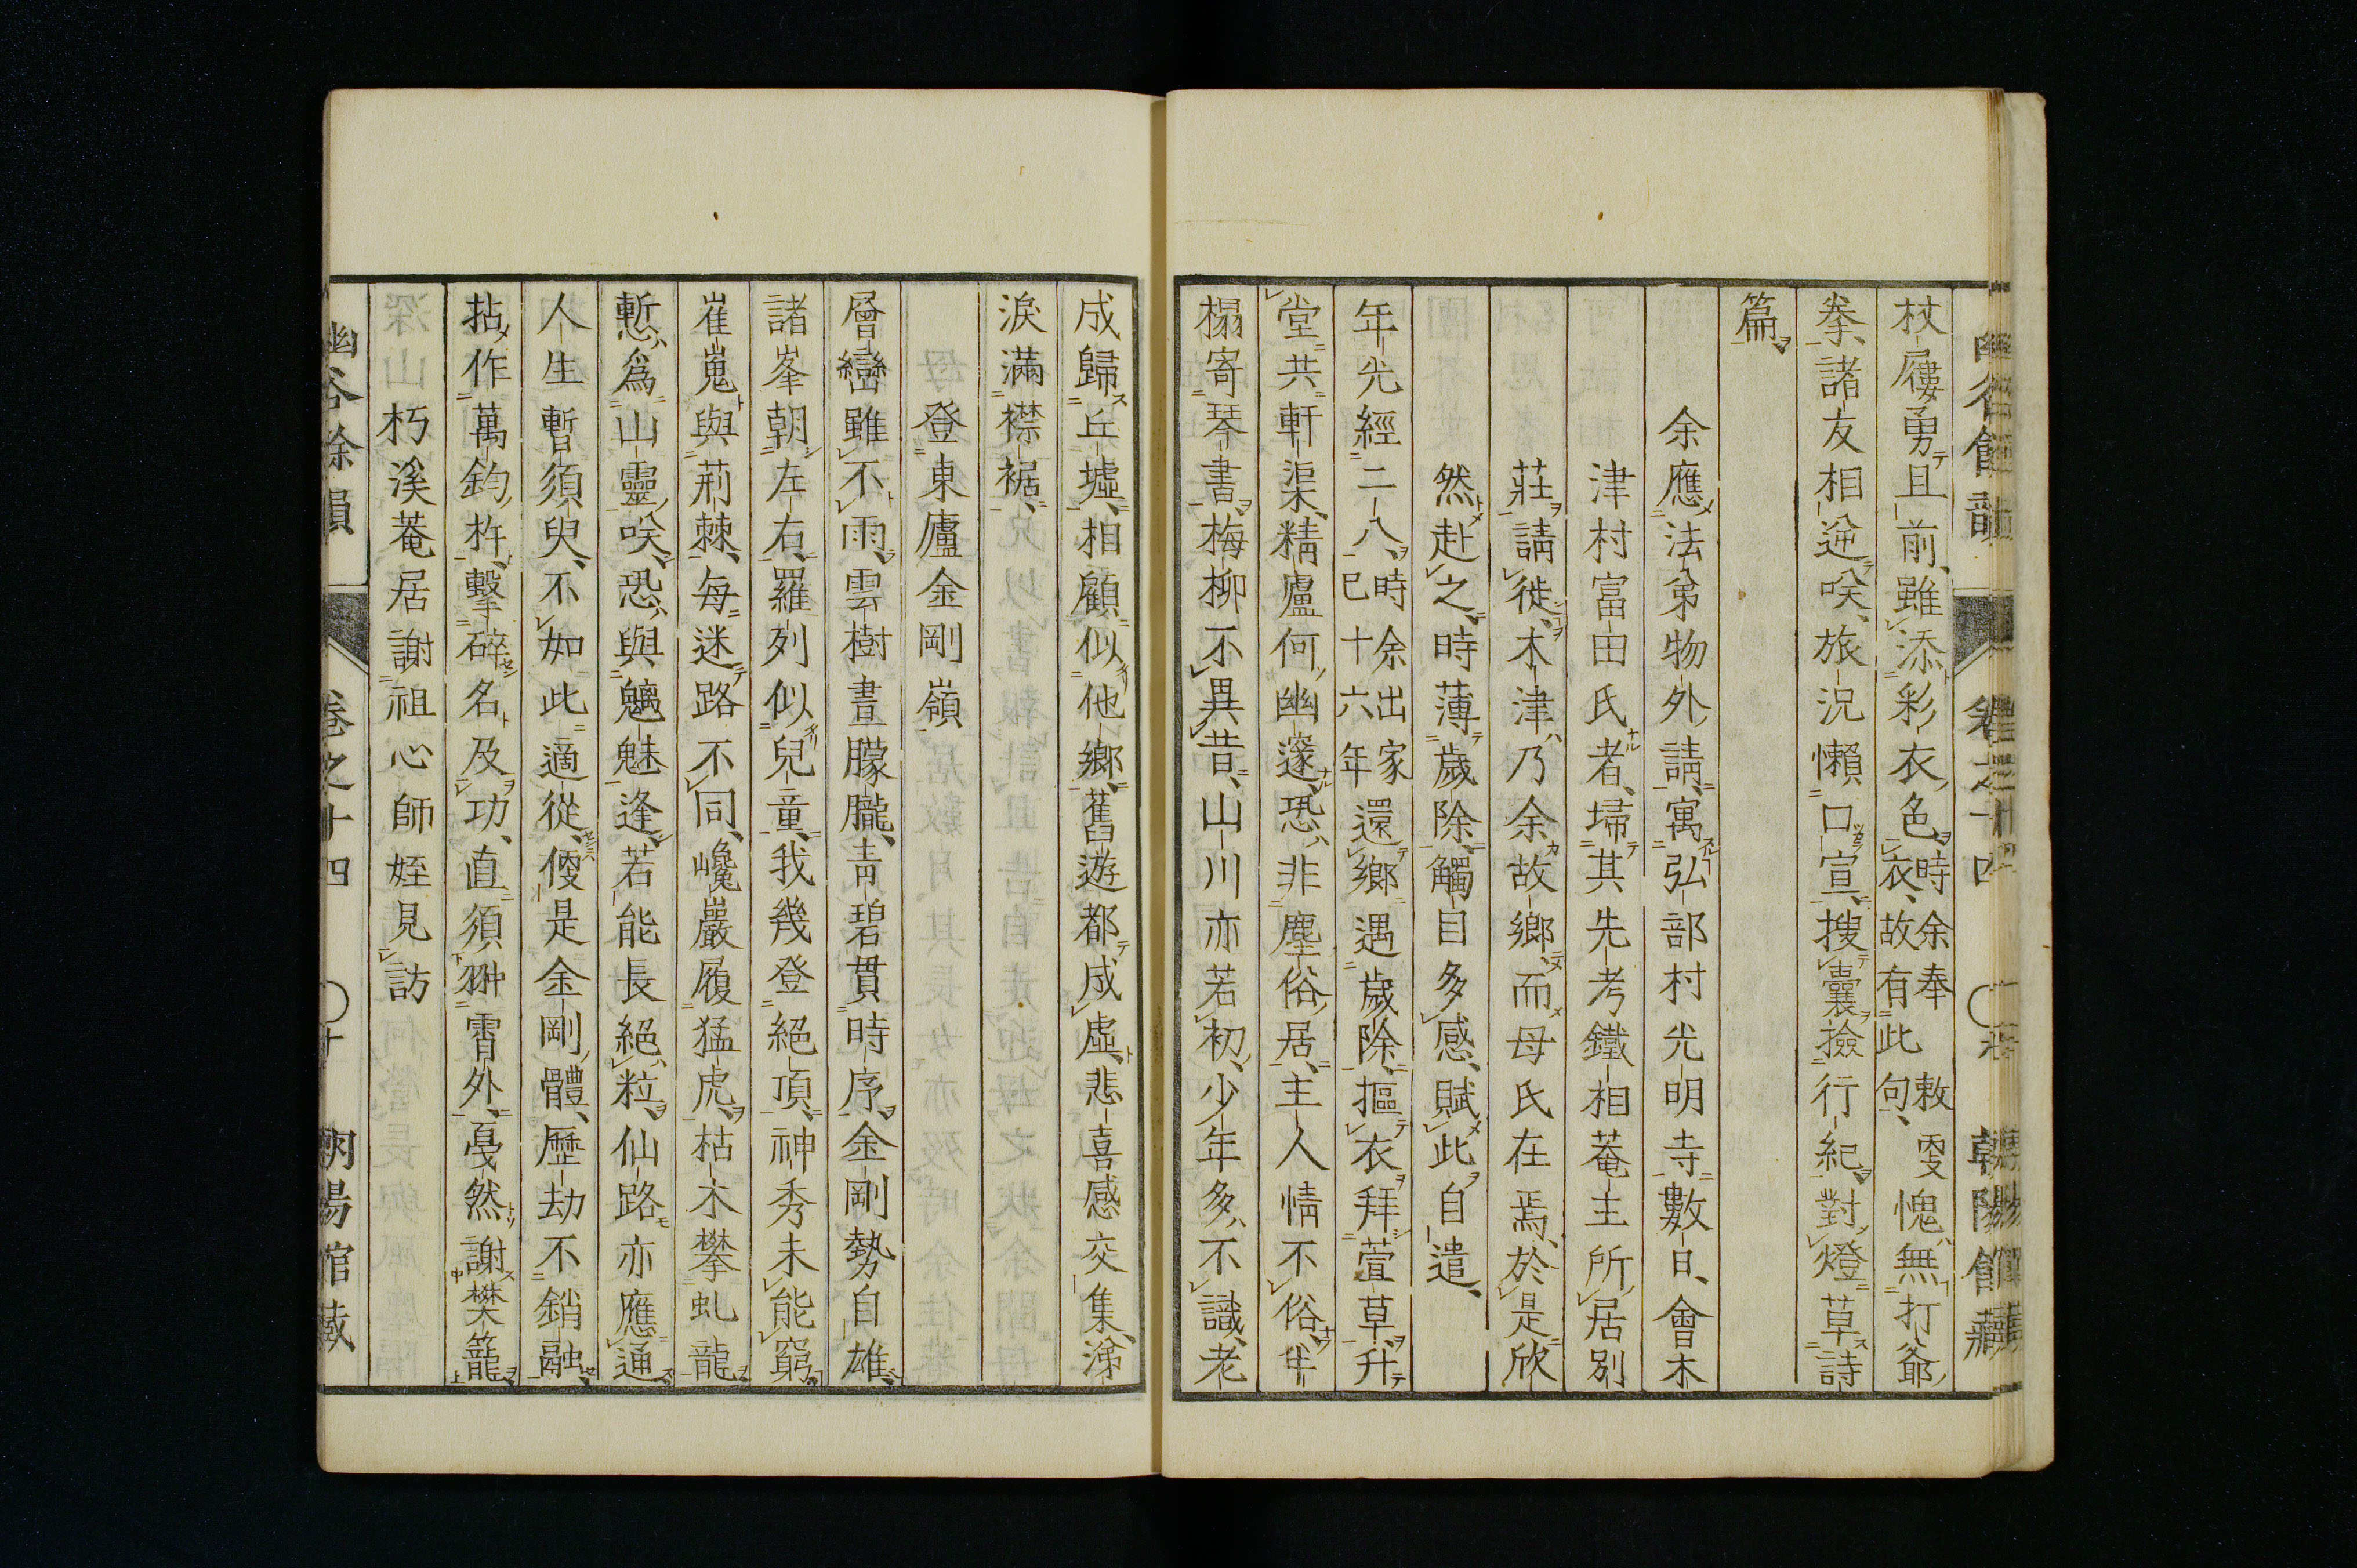 杖屨勇且前、雖添彩衣色、時余奉敕雯衣、故有此句、愧無打爺
拳、諸友相逆咲、旅況懶口宣、搜囊撿行紀、對燈草詩
篇、
余應法弟物外請、寓弘部村光明寺數日、會木
津村富田氏者、掃其先考鐵相菴主所居別
莊、請徙、木津乃余故鄉、而母氏在焉、於是欣
然赴之、時薄歲除、觸目多感、賦此自遣、
年光經二八、時余出家巳十六年還鄉遇歲除、摳衣拜萱草、升
堂共軒渠、精廬何幽邃、恐非塵俗居、主人情不俗、半
榻寄琴書、梅柳不異昔、山川亦若初、少年多不識、老
成歸丘墟、相顧似他鄉、舊遊都成虛、悲喜感交集、涕
淚滿襟裾、
登東廬金剛嶺
層巒雖不雨、雲樹晝朦朧、青碧貫時序、金剛勢自雄、
諸峯朝左右、羅列似兒童、我幾登絕頂、神秀未能窮、
崔嵬與荊棘、每迷路不同、巉巖履猛虎、枯木攀虬龍、
慙爲山靈咲、恐與魑魅逢、若能長絕粒、仙路亦應通、
人生暫須臾、不如此適從、便是金剛體、歷劫不銷融、
拈作萬鈞杵、擊碎名及功、直須翀霄外、戞然謝樊籠、
朽溪菴居謝祖心師姪見訪
幽谷餘韻 卷之十四 〇十 朝陽館藏